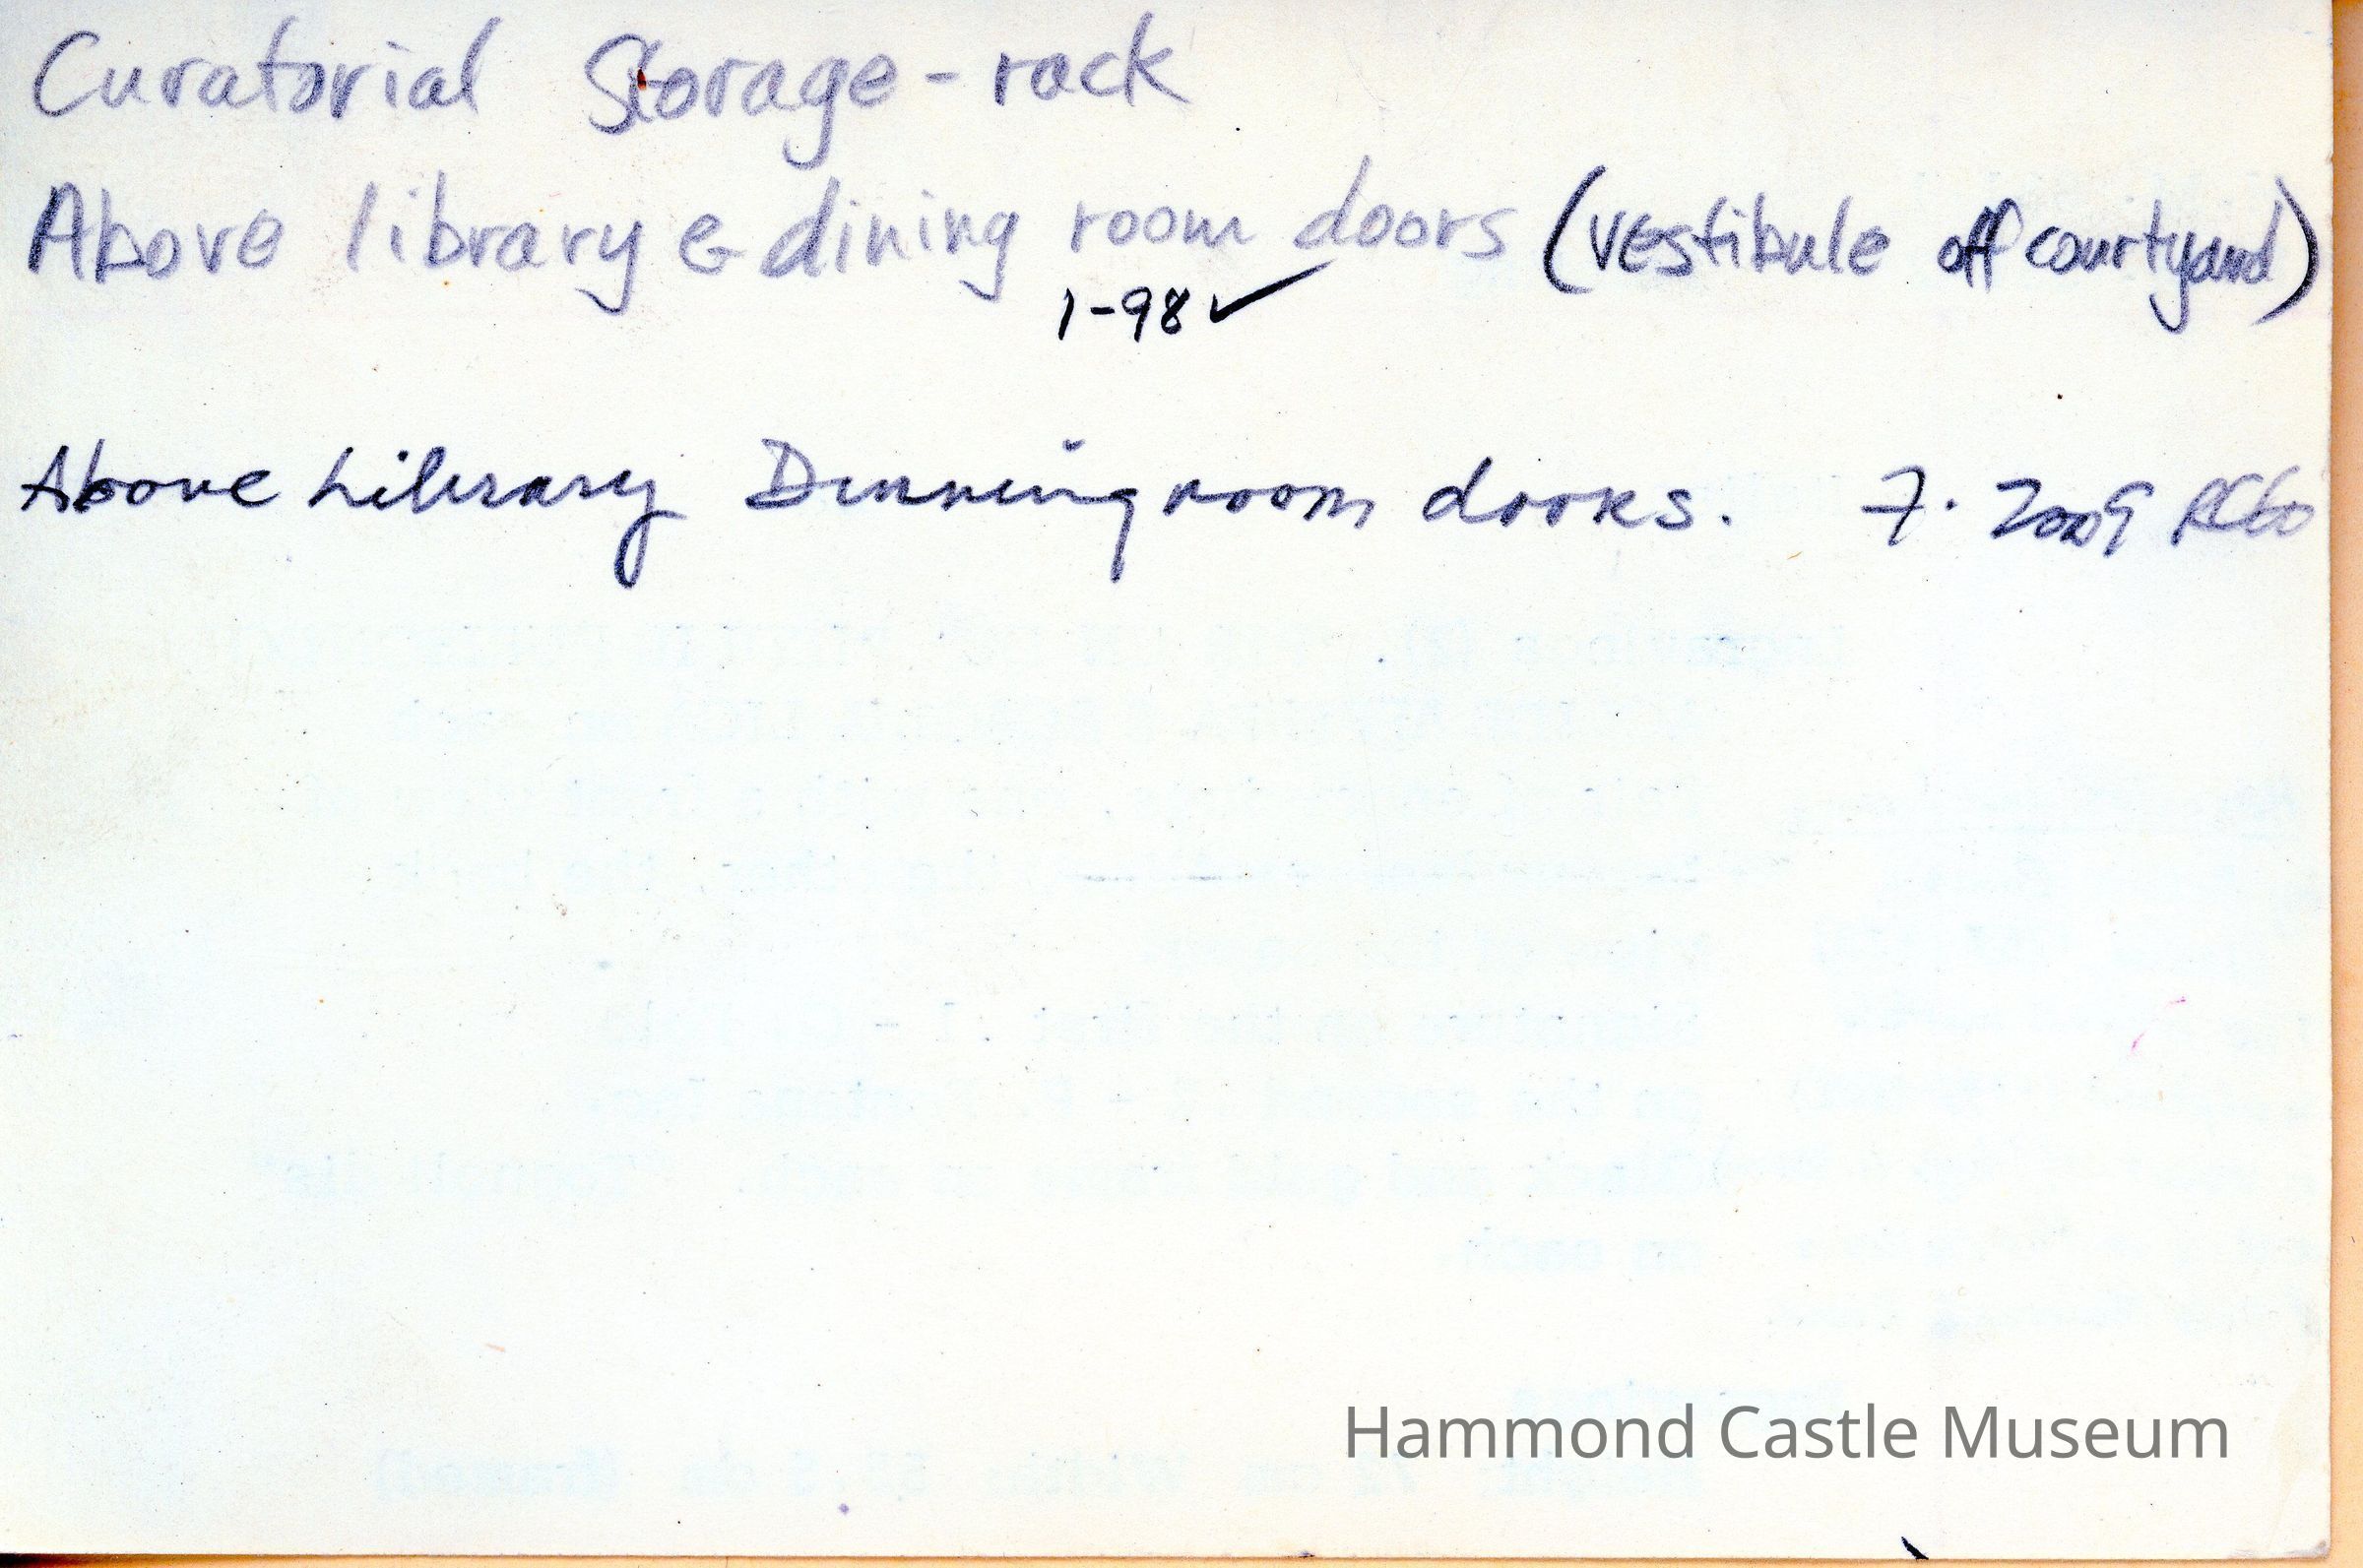 Curatorial Storage - rack
Above library & dining room doors (vestibule off courtyard)
1-98 ✓
Above Library Dinning room doors. 7. 2009
Hammond Castle Museum